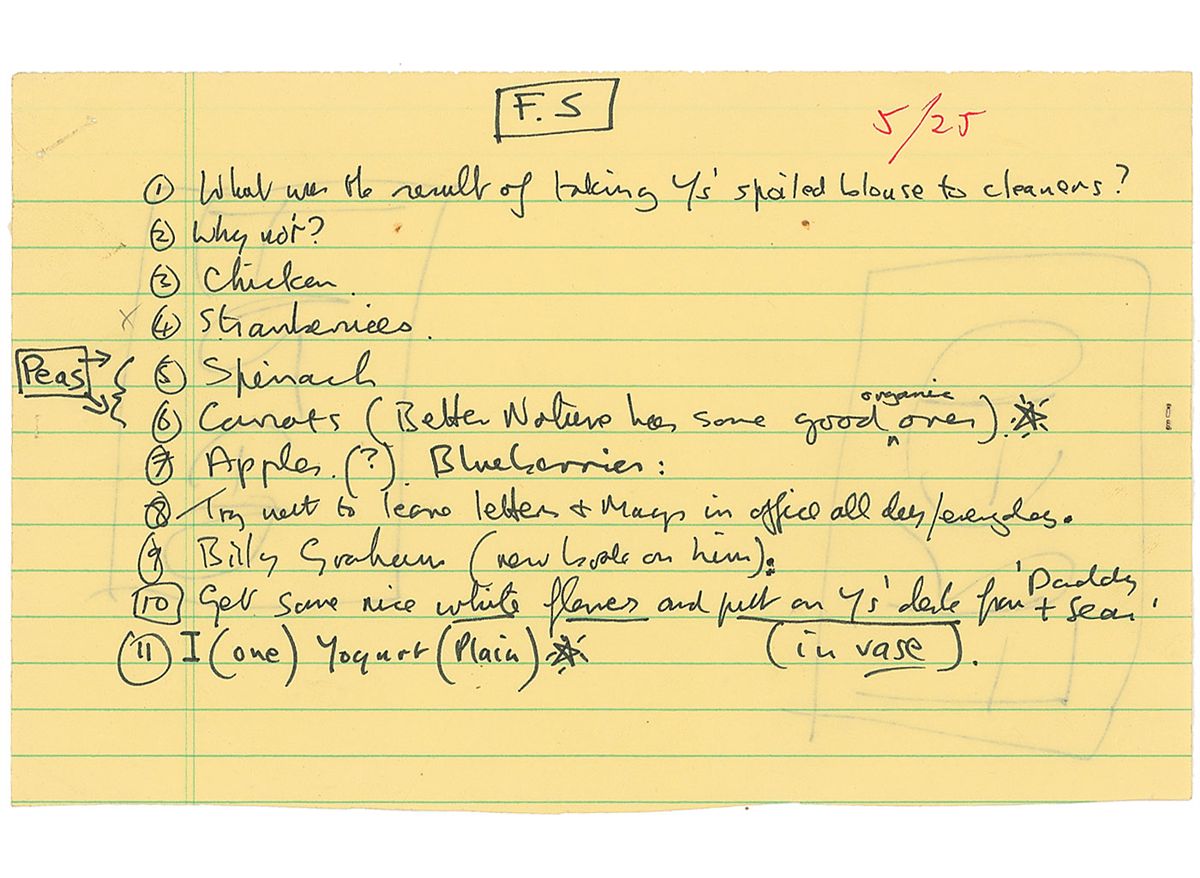 F. S
5/25
① What was the result of taking Ys' spoiled blouse to cleaners?
② Why not?
③ Chicken.
④ Strawberries.
Peas
⑤ Spinach
⑥ Carrots (Better Nature has some good organic ones).
⑦ Apples. (?) Blueberries:
⑧ Try not to leave letters + Mags in office all day/everyday.
⑨ Billy Graham (new book on him):
10 Get some nice white flowers and putt on Ys' desk from 'Daddy + Sean'
(in vase).
⑪ I (one) Yogurt (Plain)